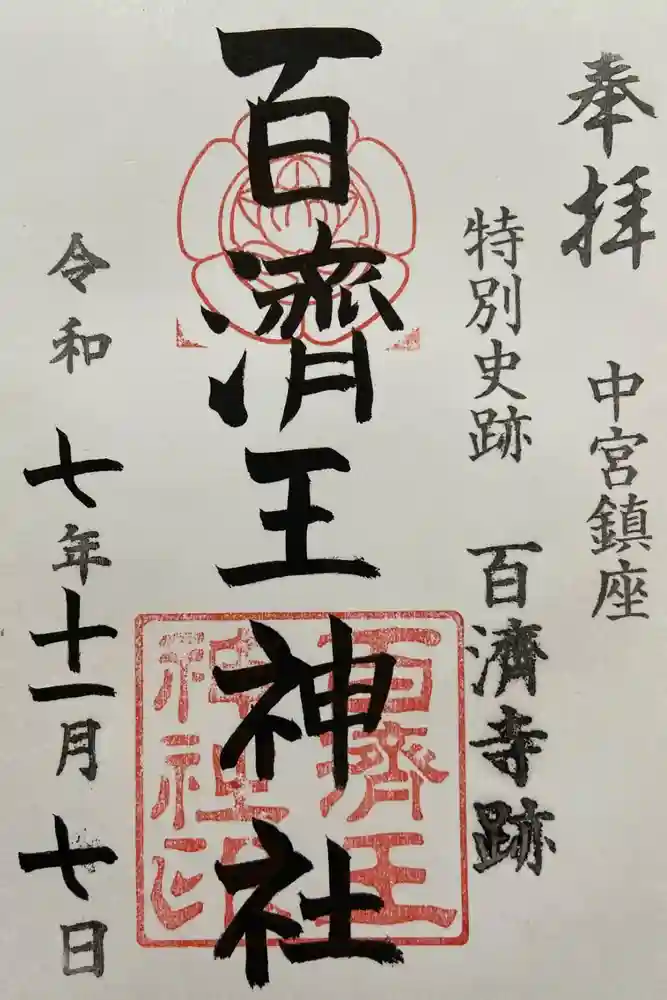 奉拝
中宮鎮座
特別史跡 百済寺跡
百済王神社
令和七年十一月七日
百濟王
神社印